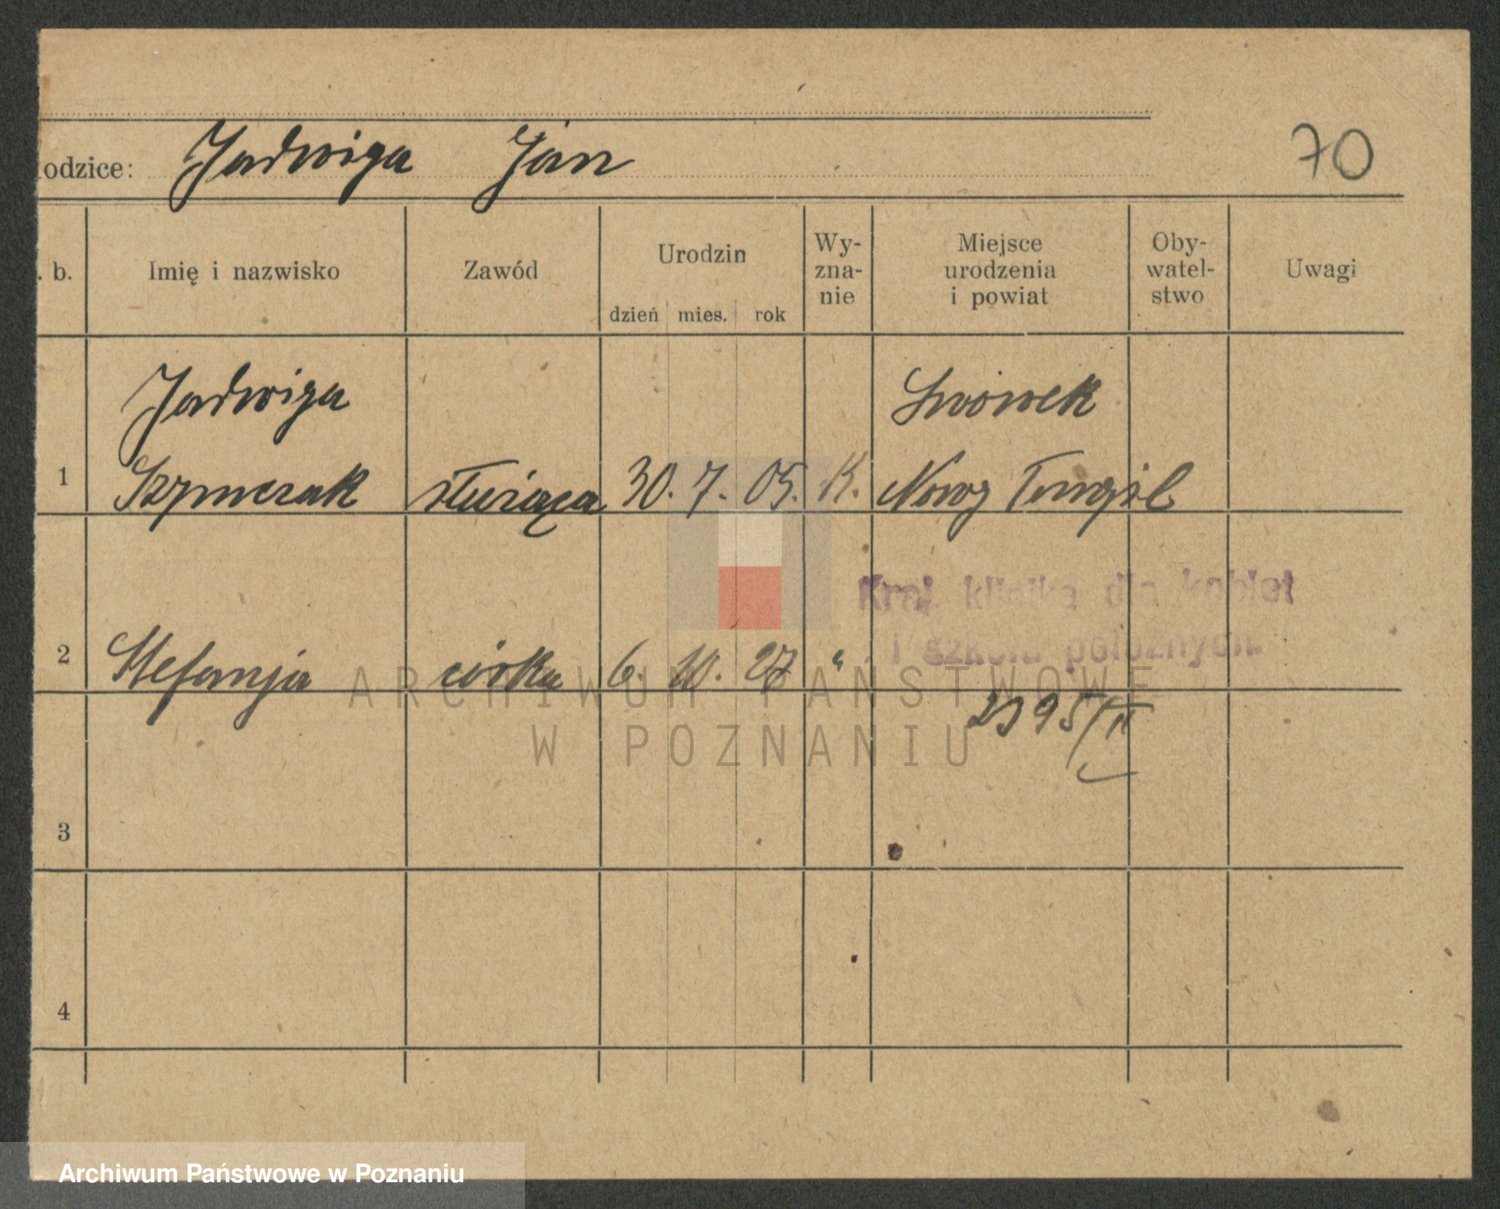 odzice: Jadwiga Jan
70
. b. Imię i nazwisko Zawód Urodzin dzień mies. rok Wy-zna-nie Miejsce urodzenia i powiat Oby-watel-stwo Uwagi
Jadwiga Lwówek
1 Szymczak służąca 30. 7. 05. K. Nowy
Kraj. klinika dla kobiet
i szkoła położnych.
2 Stefanja córka 6. 10. 27 "
ARCHIWUM PAŃSTWOWE
W POZNANIU
2395/II
3
4
Archiwum Państwowe w Poznaniu